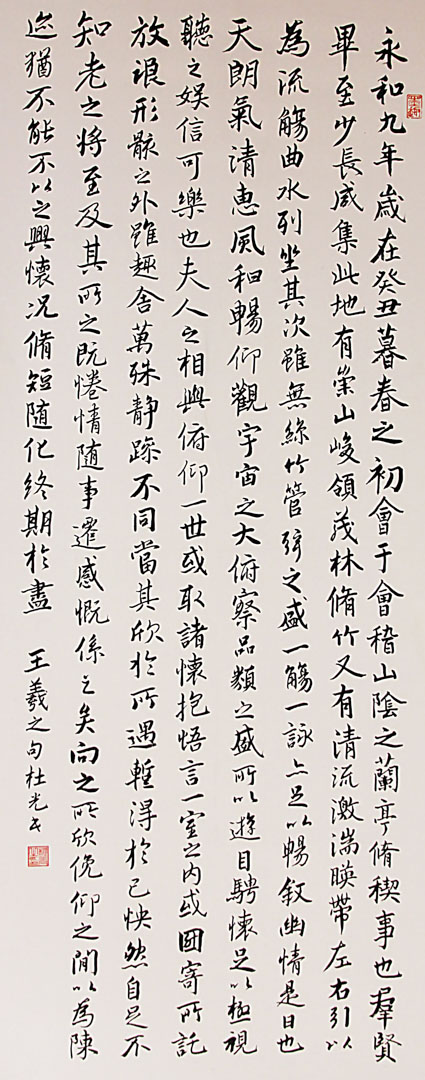 永和九年歲在癸丑暮春之初會于會稽山陰之蘭亭脩稧事也羣賢
畢至少長咸集此地有崇山峻領茂林脩竹又有清流激湍暎帶左右引以
為流觴曲水列坐其次雖無絲竹管弦之盛一觴一詠亦足以暢敘幽情是日也
天朗氣清惠風和暢仰觀宇宙之大俯察品類之盛所以遊目騁懷足以極視
聽之娛信可樂也夫人之相與俯仰一世或取諸懷抱悟言一室之內或因寄所託
放浪形骸之外雖趣舍萬殊静躁不同當其欣於所遇暫得於己怏然自足不
知老之將至及其所之既惓情隨事遷感慨係之矣向之所欣俛仰之閒以為陳
迹猶不能不以之興懷況脩短随化終期於盡 王羲之句杜光